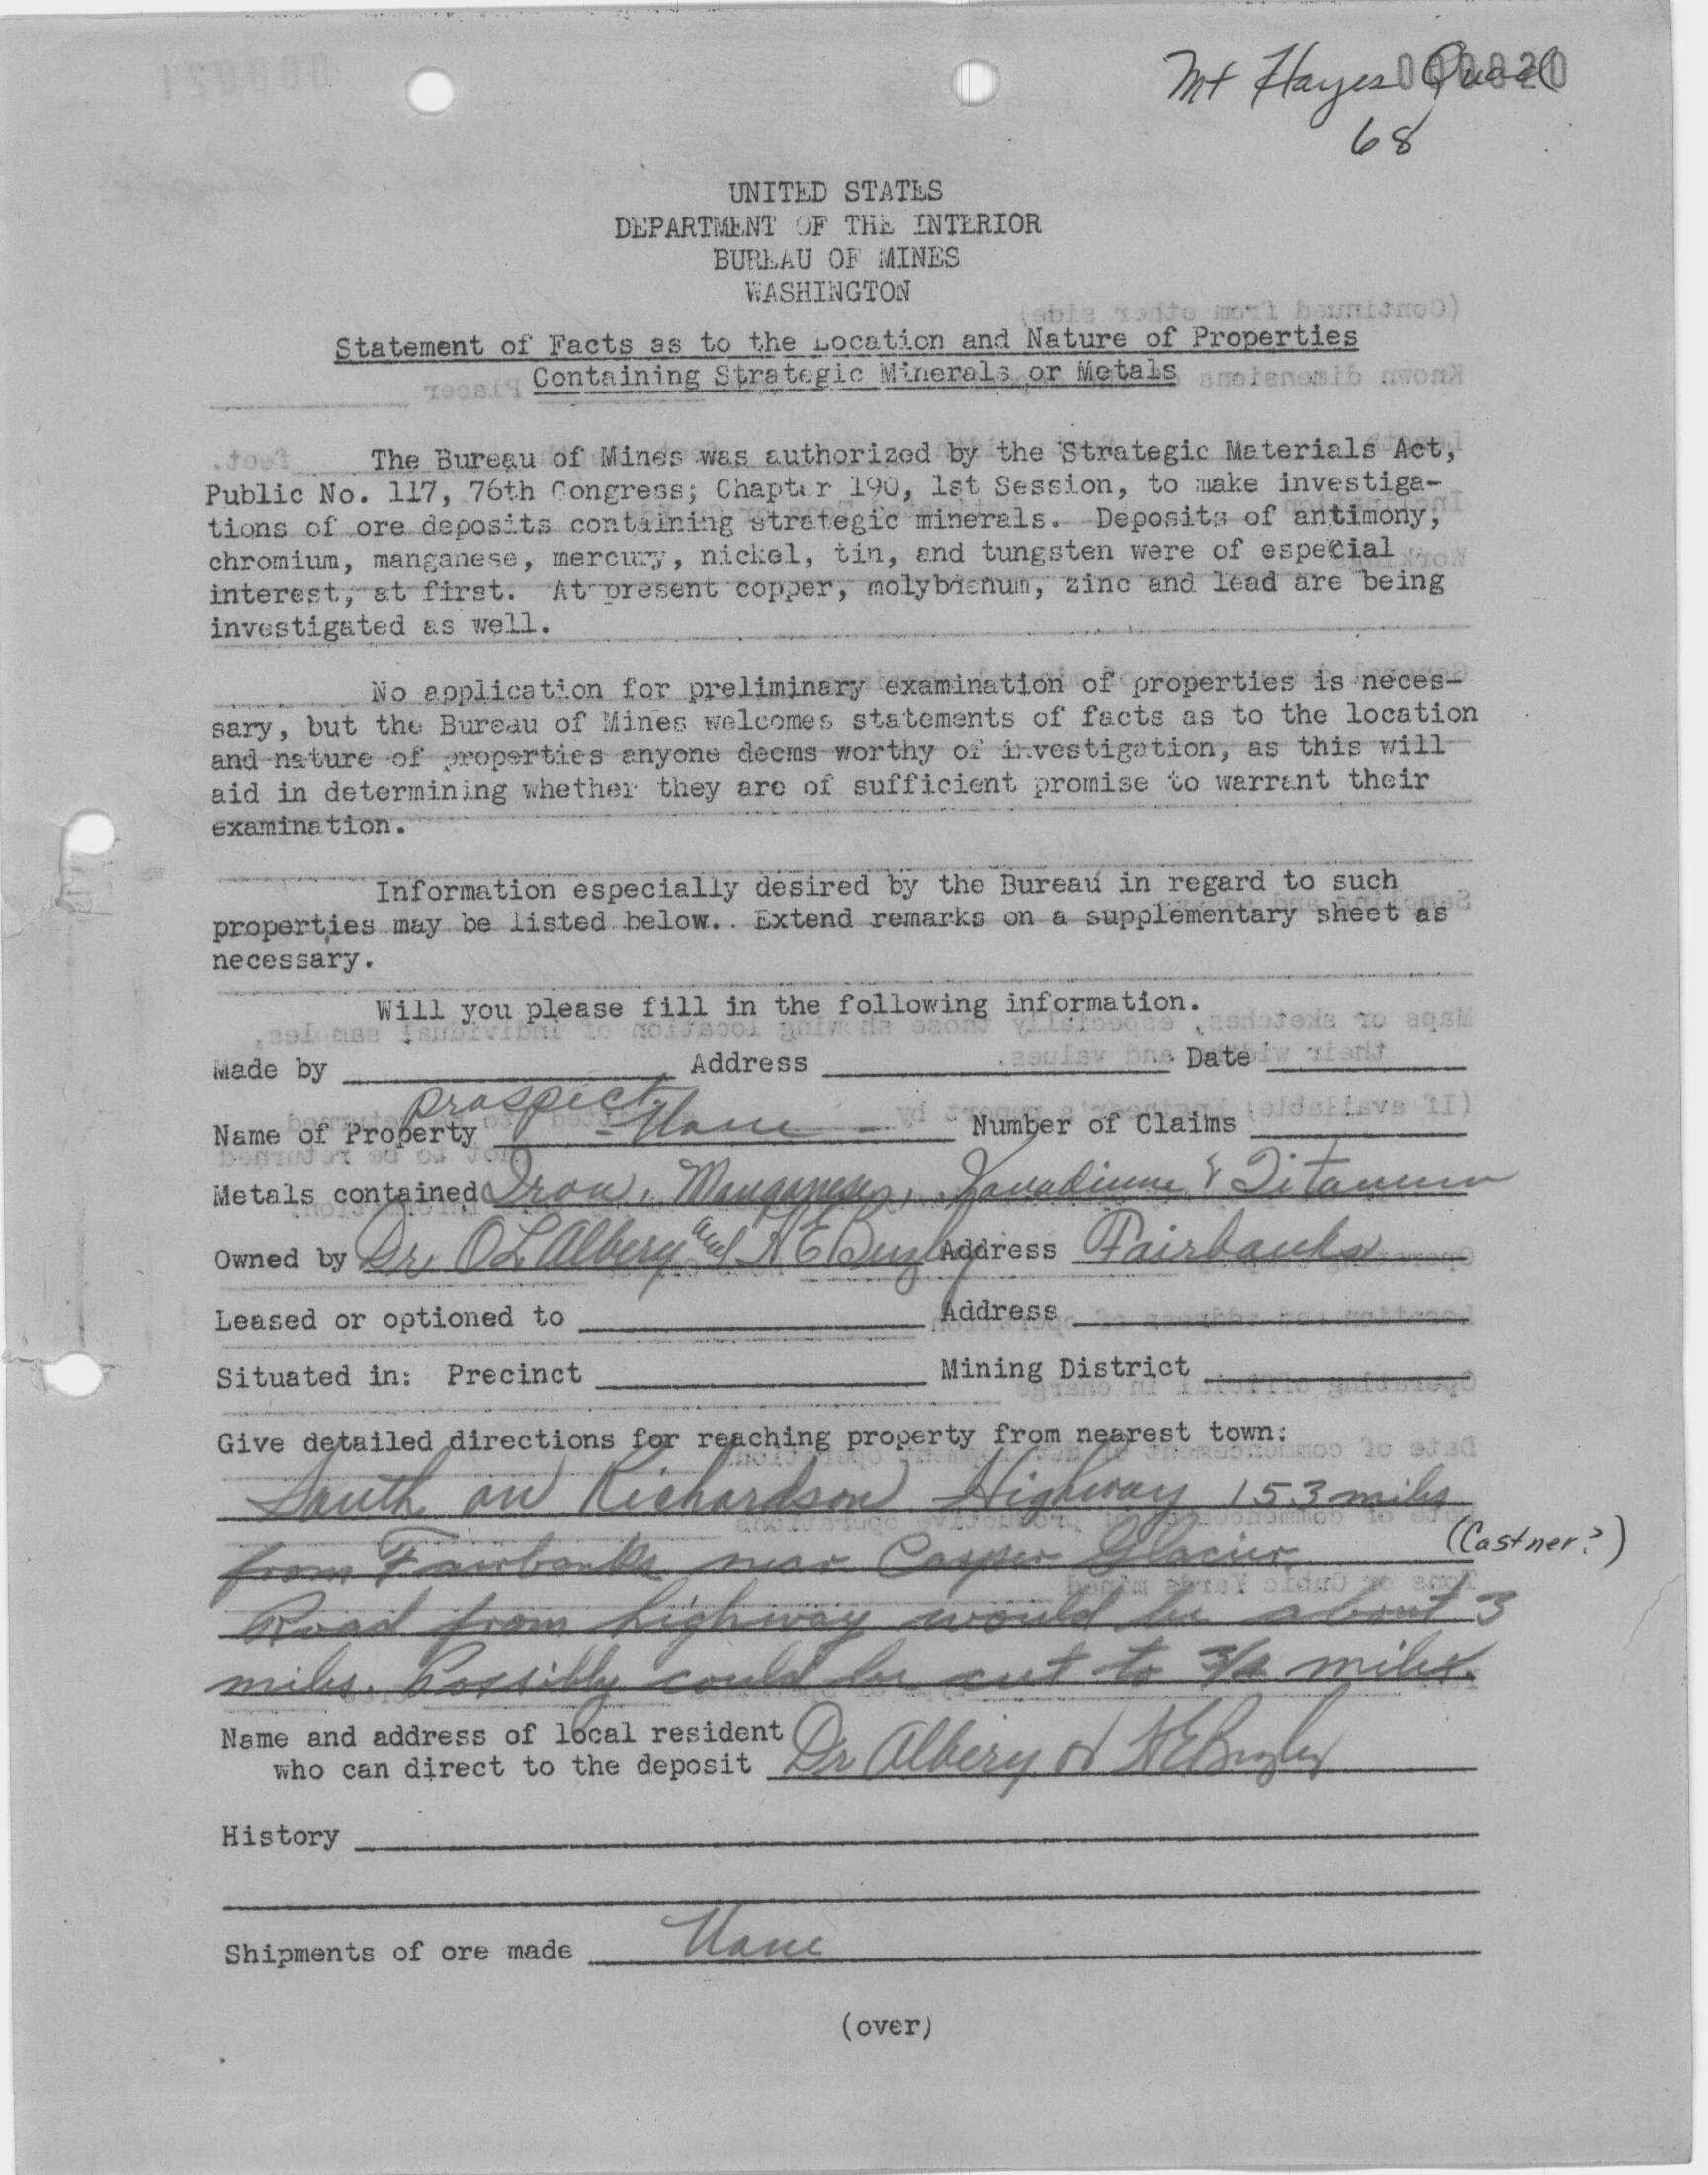 Mt Hayes Quad
000020
68
UNITED STATES
DEPARTMENT OF THE INTERIOR
BUREAU OF MINES
WASHINGTON
Statement of Facts as to the Location and Nature of Properties
Containing Strategic Minerals or Metals
The Bureau of Mines was authorized by the Strategic Materials Act,
Public No. 117, 76th Congress; Chapter 190, 1st Session, to make investiga-
tions of ore deposits containing strategic minerals. Deposits of antimony,
chromium, manganese, mercury, nickel, tin, and tungsten were of especial
interest, at first. At present copper, molybdenum, zinc and lead are being
investigated as well.
No application for preliminary examination of properties is neces-
sary, but the Bureau of Mines welcomes statements of facts as to the location
and nature of properties anyone deems worthy of investigation, as this will
aid in determining whether they are of sufficient promise to warrant their
examination.
Information especially desired by the Bureau in regard to such
properties may be listed below. Extend remarks on a supplementary sheet as
necessary.
Will you please fill in the following information.
Made by Address Date
prospect.
Name of Property - None - Number of Claims
Metals contained Iron, Manganese, Vanadium & Titanium
Owned by Dr. O L Albery and H E Buzby Address Fairbanks
Leased or optioned to Address
Situated in: Precinct Mining District
Give detailed directions for reaching property from nearest town:
South on Richardson Highway 153 miles
from Fairbanks near Casper Glacier. (Castner?)
Road from highway would be about 3
miles. Possibly could be cut to 3/4 miles.
Name and address of local resident
who can direct to the deposit Dr Albery or H E Buzby
History
Shipments of ore made None
(over)